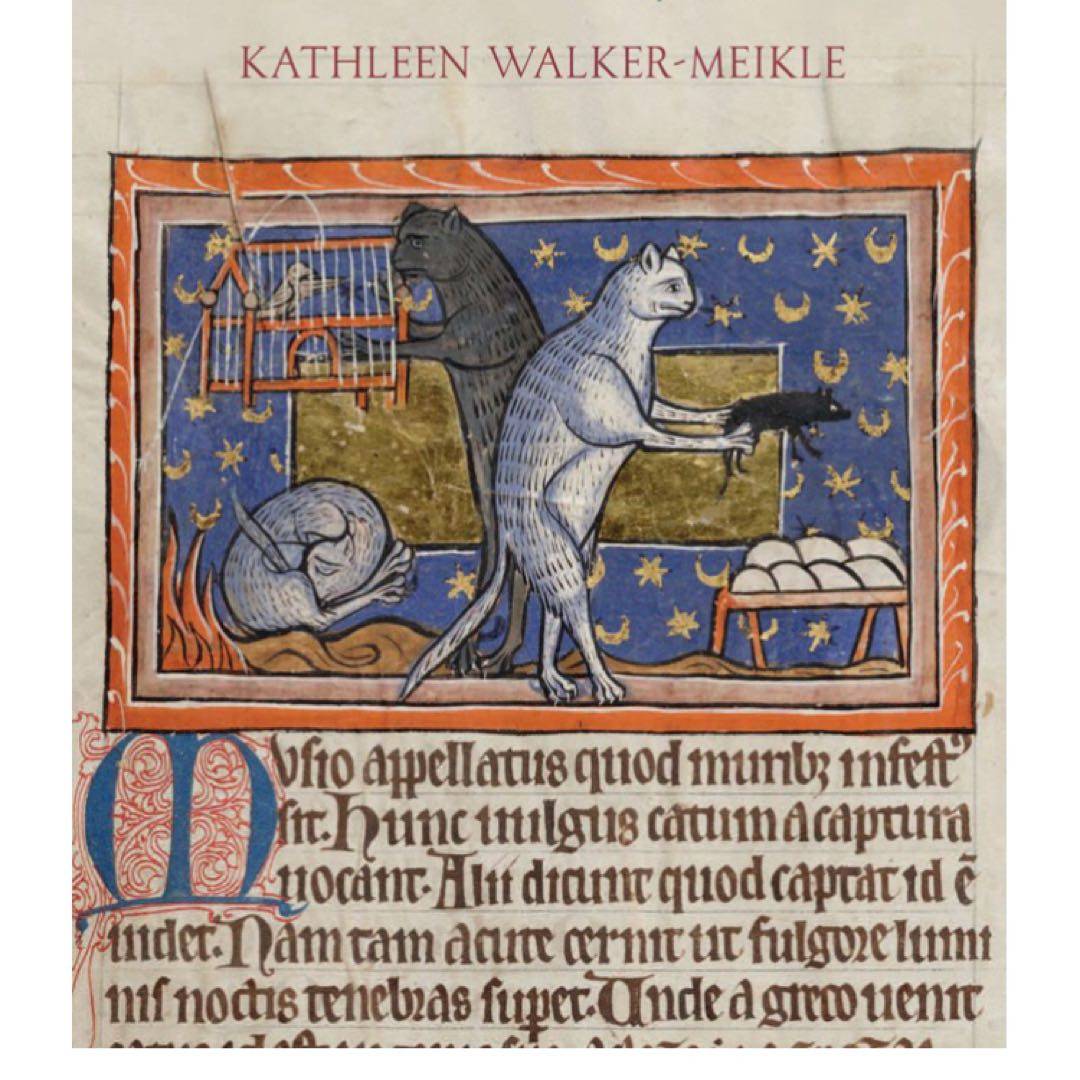 KATHLEEN WALKER-MEIKLE
Musio appellatus quod muribꝫ infestꝰ
sit. Hunc uulgus catum a captura
uocant. Alii dicunt quod captat id ē
uidet. Nam tam acute cernit ut fulgore lumi
nis noctis tenebras supet. Unde a greco uenit